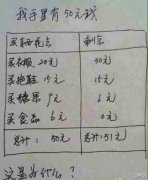 我手里有50元钱
买东西花去 剩余
买衣服 20元 30元
买拖鞋 15元 15元
买糖果 9元 6元
买食品 6元 0元
总计：50元 总计：51元
这是为什么？